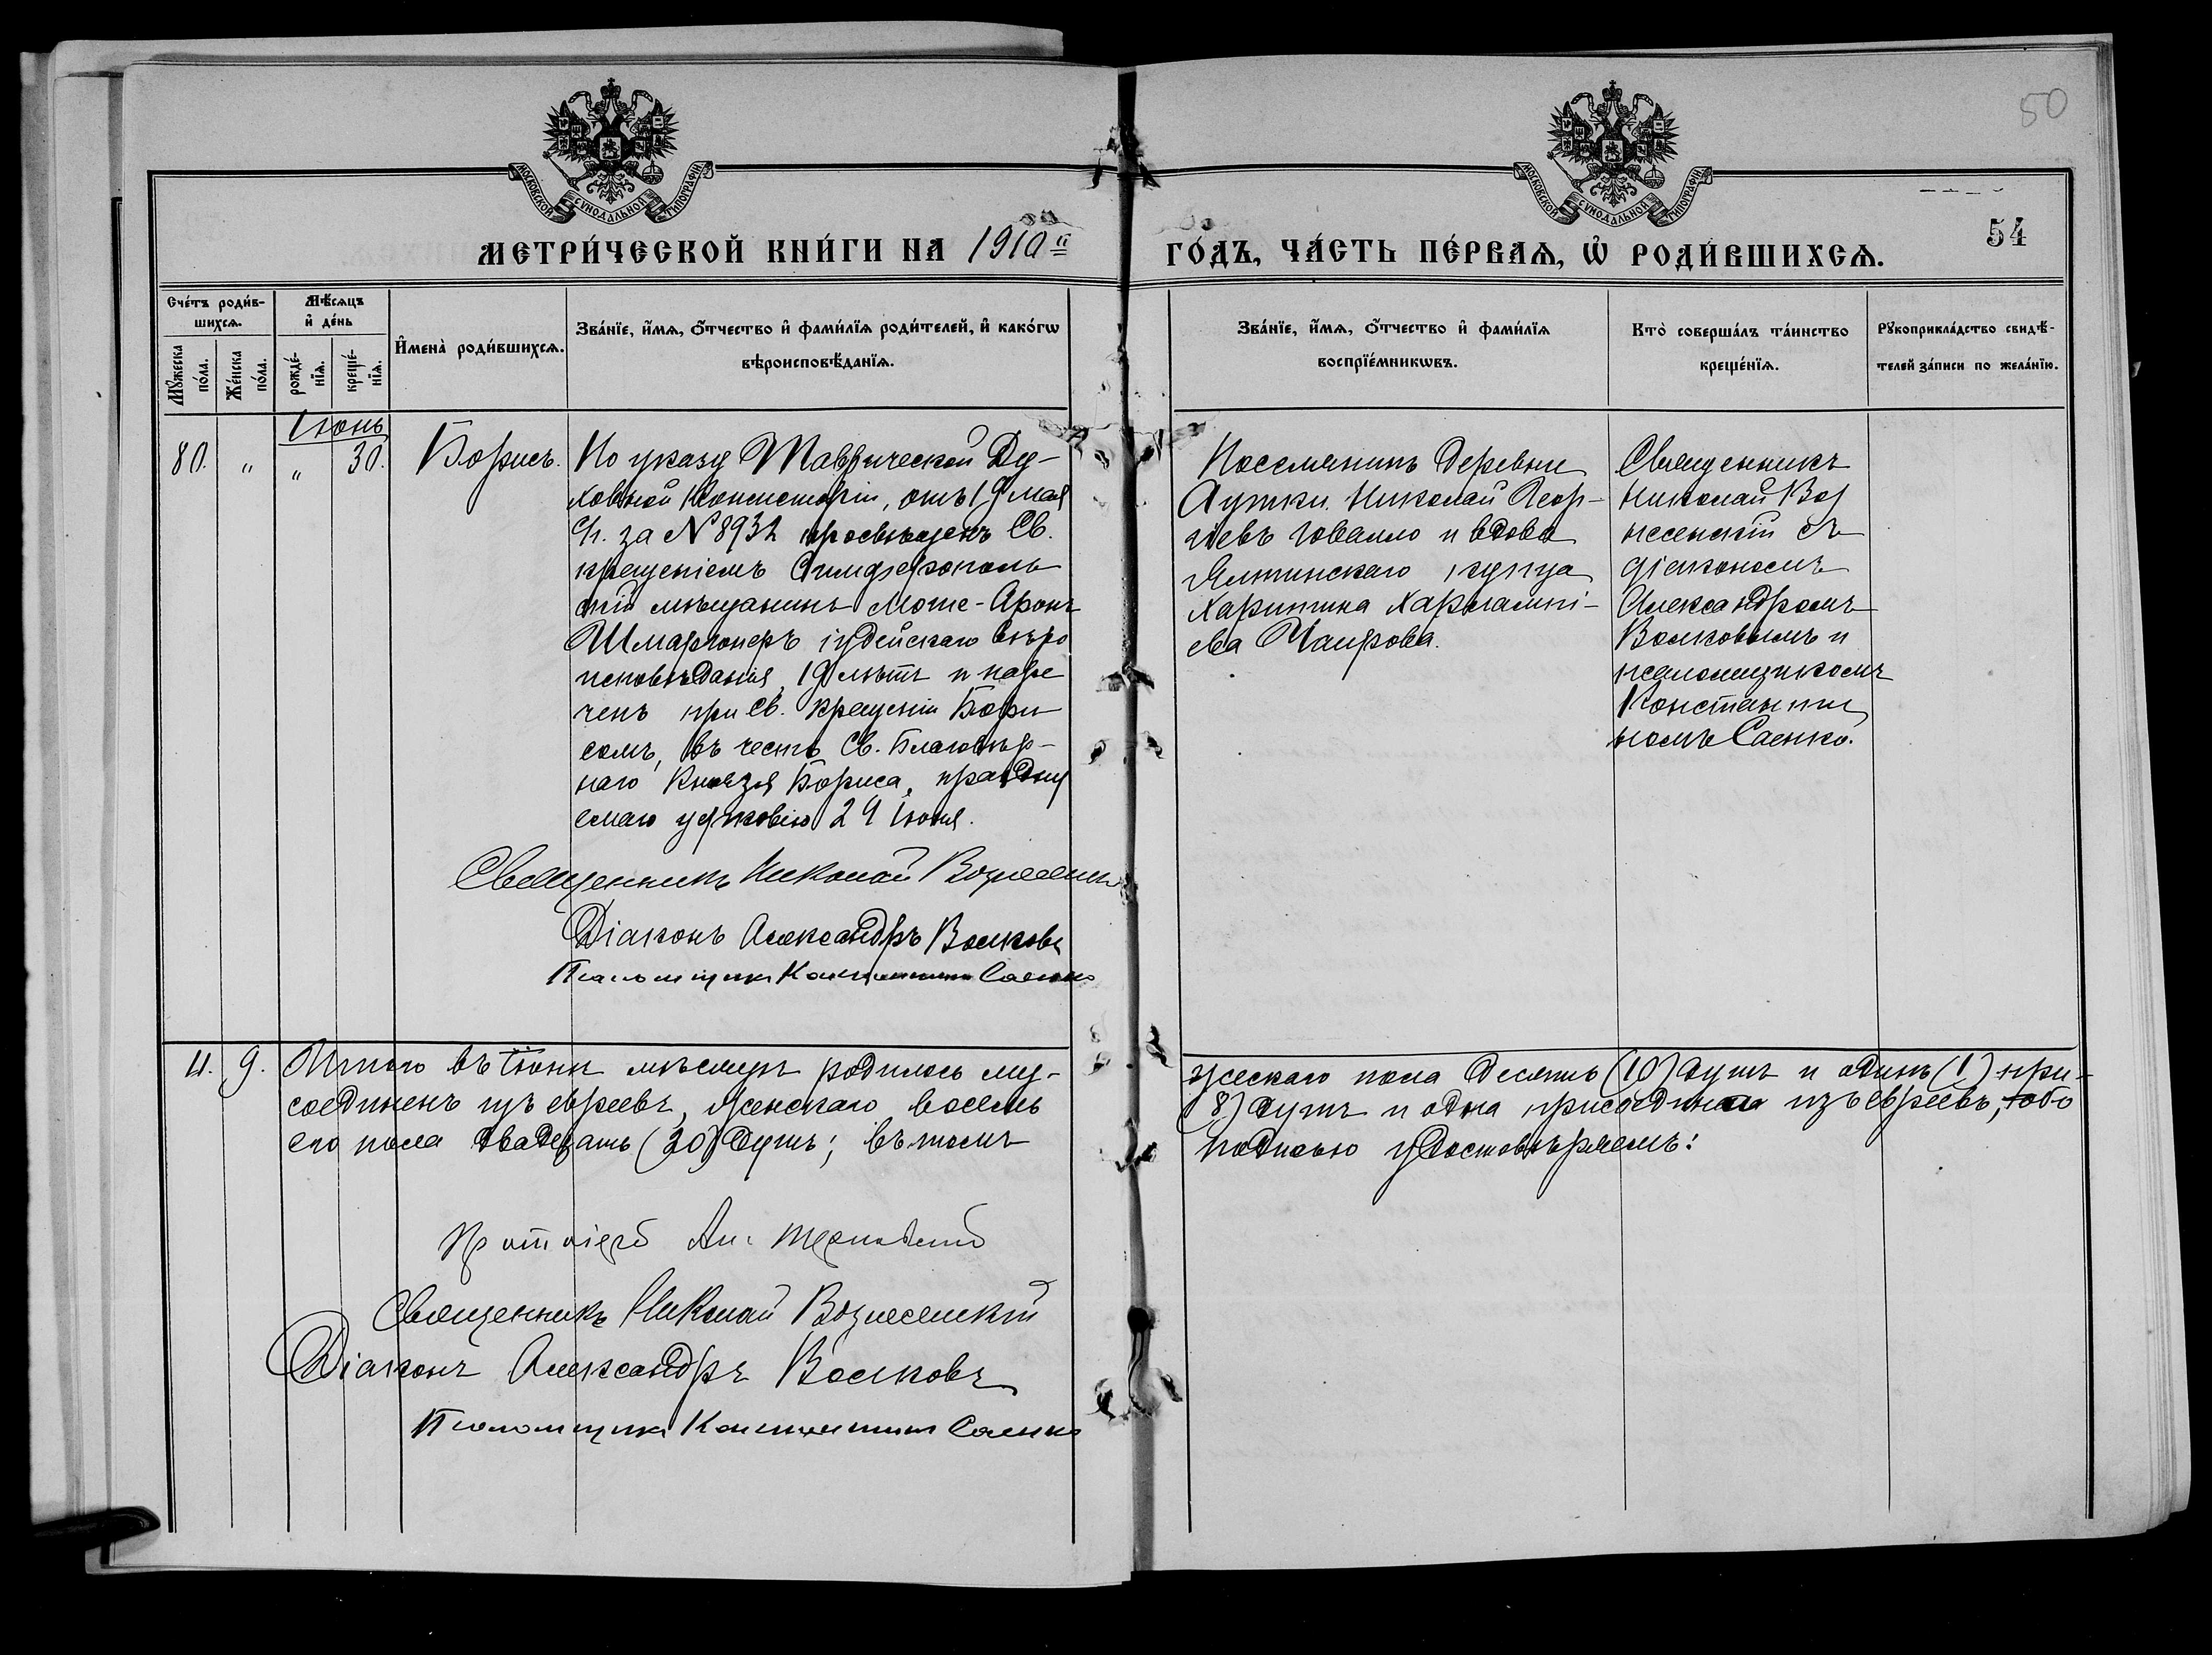 50
МОСКОВСКОЙ СѴНОДАЛЬНОЙ ТИПОГРАФІИ
МОСКОВСКОЙ СѴНОДАЛЬНОЙ ТИПОГРАФІИ
54
МЕТРИ́ЧЕСКОЙ КНИ́ГИ НА 1910й ГО́ДЪ, ЧА́СТЬ ПЕ́РВАѦ, Ѡ РОДИ́ВШИХСѦ.
Сче́тъ роди́в-
шихсѧ.
Мꙋ́жеска по́ла.
Же́нска по́ла.
Мѣ́сѧцъ
и҆ де́нь
рожде́-нїѧ.
креще́-нїѧ.
И҆мена̀ роди́вшихсѧ.
Зва́нїе, и҆́мѧ, ѻ҆́тчество и҆ фами́лїѧ роди́телей, и҆ како́гѡ
вѣроисповѣ́данїѧ.
Зва́нїе, и҆́мѧ, ѻ҆́тчество и҆ фами́лїѧ
воспрїе́мникѡвъ.
Кто̀ соверша́лъ та́инство
креще́нїѧ.
Рꙋкоприкла́дство свидѣ́-
телей за́писи по жела́нїю.
Іюнь
80. " " 30.
Борисъ.
По указу Таврической Ду-
ховной Консисторіи, отъ 19 мая
с/г. за № 8932 просвѣщенъ Св.
крещеніемъ Симферополь
скій мѣщанинъ Моте-Аронъ
Шмаргонеръ іудейскаго вѣро
исповѣданія, 19 лѣтъ и наре
ченъ при Св. Крещеніи Бори
сомъ, въ честь Св. Благовѣр-
наго Князя Бориса, праздну
емаго церковію 24 Іюля.
Священникъ Николай Вознесенск
Діаконъ Александръ Волковъ
Псаломщикъ Константинъ Саенко
Поселянинъ деревни
Аутки Николай Геор-
гіевъ Говалло и вдова
Ялтинскаго купца
Харитина Харлампі-
ева Чаирова.
Священникъ
Николай Воз
несенскій съ
діакономъ
Александромъ
Волковымъ и
псаломщикомъ
Константи
номъ Саенко.
11. 9. Итого въ Іюнѣ мѣсяцѣ родилось му-
жескаго пола десять (10) душъ и одинъ (1) при-
соединенъ изъ евреевъ, женскаго восемь
(8) душъ и одна присоединена изъ евреевъ, обо
его пола двадцать (20) душъ; въ томъ
подписью удостовѣряемъ:
Протоіерей Ал. Терновскій
Священникъ Николай Вознесенскій
Діаконъ Александръ Волковъ
Псаломщикъ Константинъ Саенко